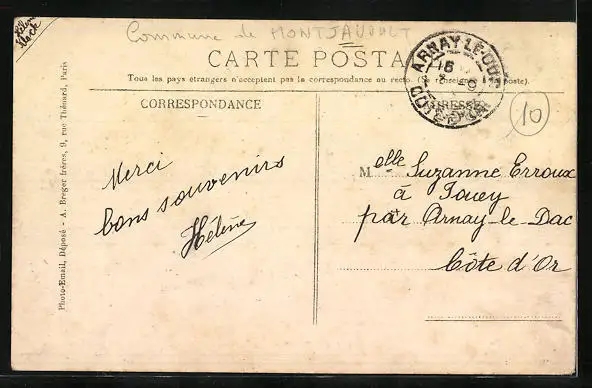 Commune de MONTJAVOULT
CARTE POSTA
Tous les pays étrangers n'acceptent pas la correspondance au recto. (Se renseigner à la poste).
CORRESPONDANCE
ARNAY-LE-DUC
16
Merci
bons souvenirs
Hélène
Melle Suzanne Erroux
à Jouey
par Arnay-le-Duc
Côte d'Or
10
Photo-Email, Déposé - A. Breger frères, 9, rue Thénard, Paris